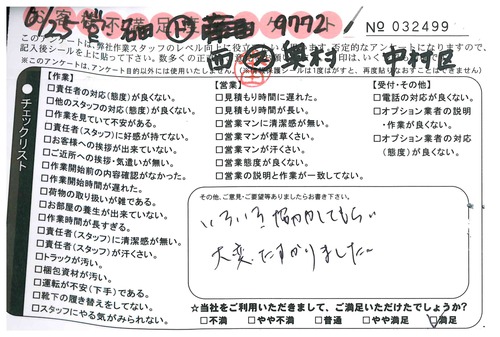 お客様不満足
アンケート
No 032499
6/25 営 名西 ト 9772
このアンケートは、弊社作業スタッフのレベル向上に役立
否定的なアンケートになりますので、
記入後シールを上に貼って下さい。数多くの正
西 ス 奥村 中村区
※このアンケートは、アンケート目的以外には使用いたしません。
保護シールは1度はがすと、再度貼りなおすことはできません)
チェックリスト
【作業】
□責任者の対応(態度)が良くない。
□他のスタッフの対応(態度)が良くない。
□作業を見ていて不安がある。
□責任者(スタッフ)に好感が持てない。
□お客様への挨拶が出来ていない。
□ご近所への挨拶・気遣いが無い。
□作業開始前の内容確認がなかった。
□作業開始時間が遅れた。
□荷物の取り扱いが雑である。
□お部屋の養生が出来ていない。
□作業時間が長すぎる。
□責任者(スタッフ)に清潔感が無い。
□責任者(スタッフ)が汗くさい。
□トラックが汚い。
□梱包資材が汚い。
□運転が不安(下手)である。
□靴下の履き替えをしてない。
□スタッフにやる気がみられない。
【営業】
□見積もり時間に遅れた。
□見積もり時間が長い。
□営業マンに清潔感が無い。
□営業マンが煙草くさい。
□営業マンが汗くさい。
□営業態度が良くない。
□営業の説明と作業が一致してない。
【受付・その他】
□電話の対応が良くない。
□オプション業者の説明
・作業が良くない。
□オプション業者の対応
(態度)が良くない。
その他、ご意見・ご要望等ありましたらお書き下さい。
いろいろ協力してもらい
大変たすかりました。
☆当社をご利用いただきまして、ご満足いただけたでしょうか?
□不満 □やや不満 □普通 □やや満足 ☑満足